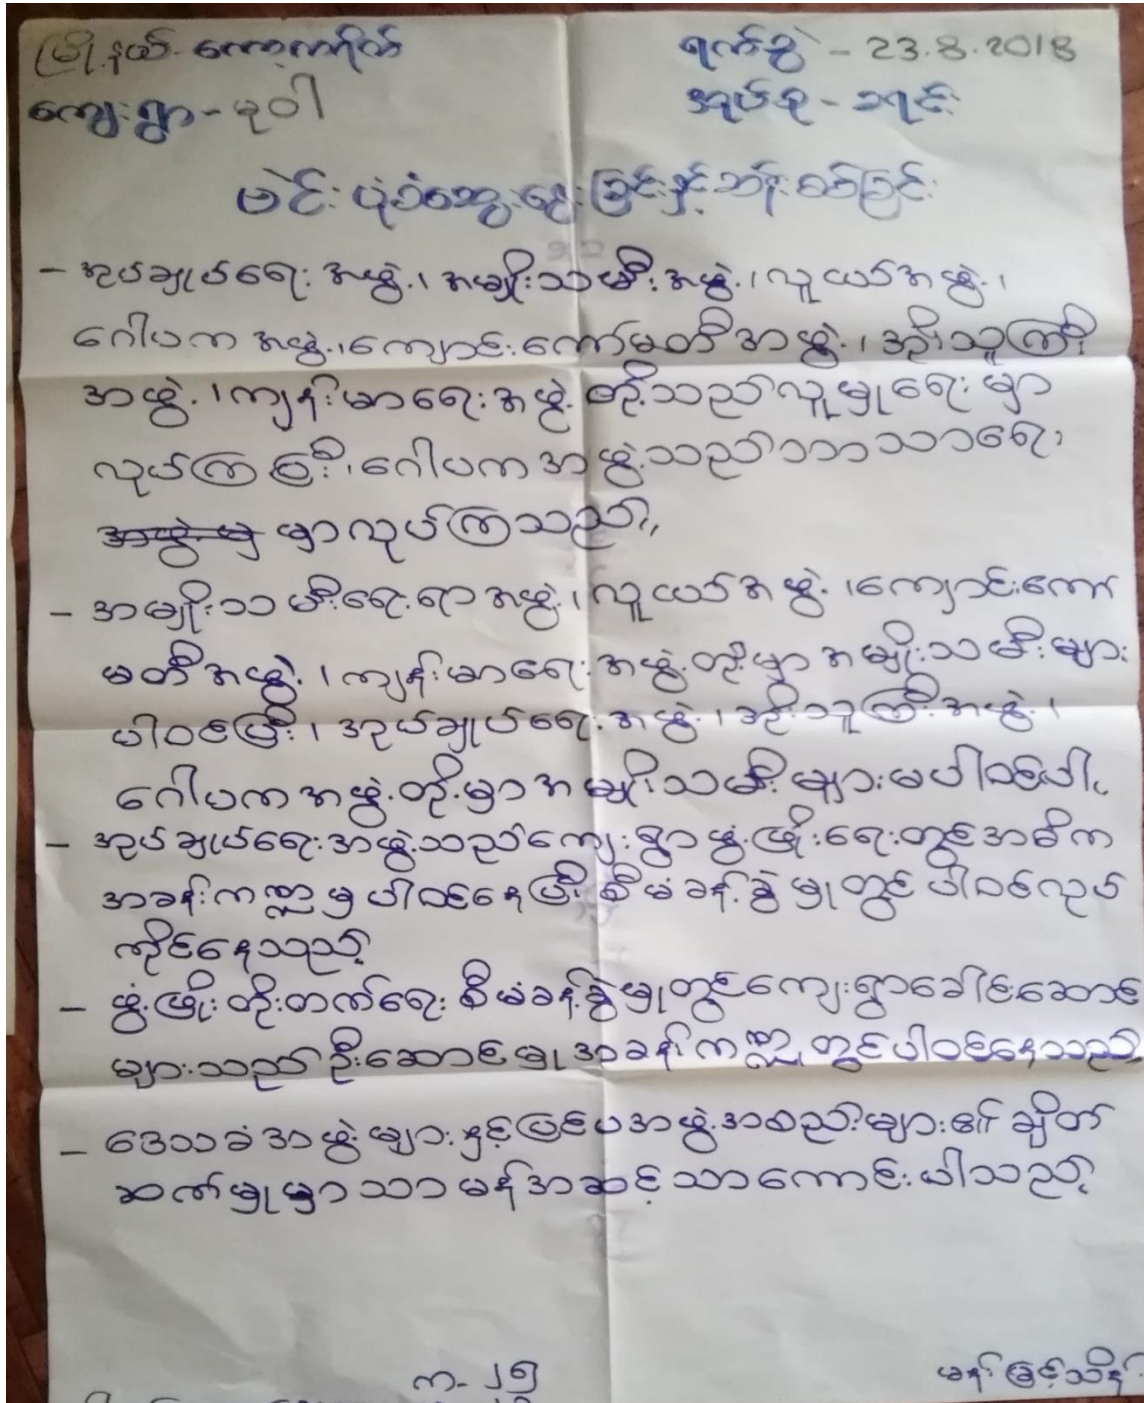 မြို့နယ်-ကော့ကရိတ် ရက်စွဲ - 23.8.2018
ကျေးရွာ-ခုဝါ အုပ်စု - ခရင်း
ဗင်းပုံသဏ္ဌေးနွေးခြင်းနှင့်ဘန်းစစ်ခြင်း
- အုပ်ချုပ်ရေးအဖွဲ့၊ အမျိုးသမီးအဖွဲ့၊ လူငယ်အဖွဲ့၊
ဂေါပကအဖွဲ့၊ ကျောင်းကော်မတီအဖွဲ့၊ အိုးသူကြီး
အဖွဲ့၊ ကျန်းမာရေးအဖွဲ့တို့သည်လူမှုရေးမှာ
လုပ်ကြပြီး၊ ဂေါပကအဖွဲ့သည်ဘာသာရေး
မှာလုပ်ကြသည်။
- အမျိုးသမီးရေးရာအဖွဲ့၊ လူငယ်အဖွဲ့၊ ကျောင်းကော်
မတီအဖွဲ့၊ ကျန်းမာရေးအဖွဲ့တို့မှာအမျိုးသမီးများ
ပါဝင်ပြီး၊ အုပ်ချုပ်ရေးအဖွဲ့၊ အိုးသူကြီးအဖွဲ့၊
ဂေါပကအဖွဲ့တို့မှာအမျိုးသမီးများမပါဝင်ပါ။
- အုပ်ချုပ်ရေးအဖွဲ့သည်ကျေးရွာဖွံ့ဖြိုးရေးတွင်အဓိက
အခန်းကဏ္ဍမှပါဝင်နေပြီးစီမံခန့်ခွဲမှုတွင်ပါဝင်လုပ်
ကိုင်နေသည်။
- ဖွံ့ဖြိုးတိုးတက်ရေးစီမံခန့်ခွဲမှုတွင်ကျေးရွာခေါင်းဆောင်
များသည်ဦးဆောင်မှုအခန်းကဏ္ဍတွင်ပါဝင်နေသည်
- ဒေသခံအဖွဲ့များနှင့်ပြင်ပအဖွဲ့အစည်းများ၏ချိတ်
ဆက်မှုမှာသာမန်အဆင့်သာကောင်းပါသည်။
က-၂၅ မန်းမြင့်သိန်း